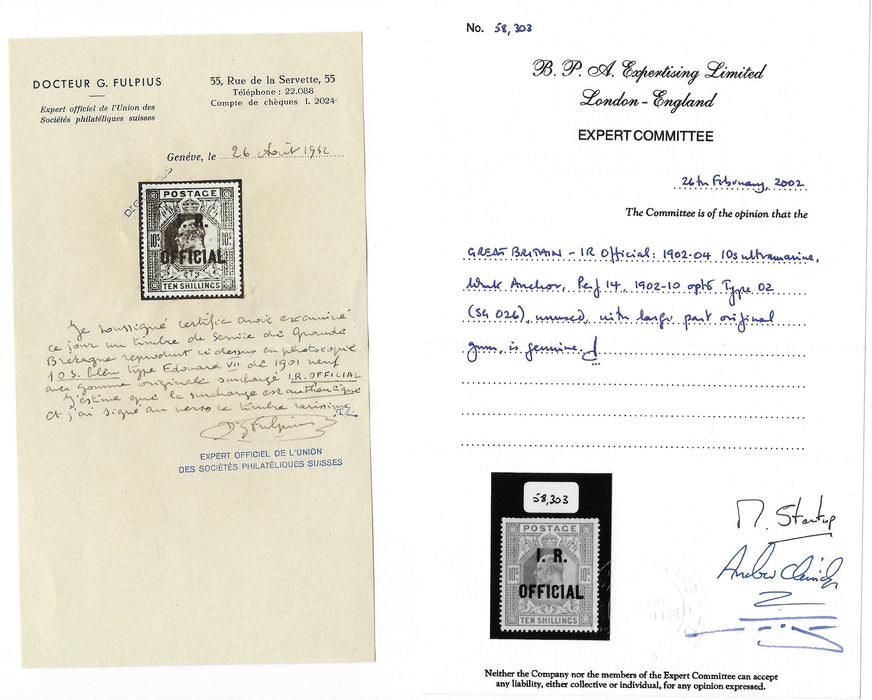 DOCTEUR G. FULPIUS
Expert officiel de l'Union des
Sociétés philatéliques suisses
55, Rue de la Servette, 55
Téléphone : 22.088
Compte de chèques I. 2024
Genève, le 26 Août 1942
POSTAGE
I. R.
10s 10s
OFFICIAL
TEN SHILLINGS
Je soussigné certifie avoir examiné
ce jour un timbre de Service de Grande
Bretagne reproduit ci dessus en photocopie
10 S. bleu type Edouard VII de 1901 neuf
avec gomme originale surchargé I.R. OFFICIAL
J'estime que la surcharge est authentique
et j'ai signé au verso ce timbre rarissime
Dr G Fulpius
EXPERT OFFICIEL DE L'UNION
DES SOCIÉTÉS PHILATÉLIQUES SUISSES
No. 58,303
B. P. A. Expertising Limited
London - England
EXPERT COMMITTEE
26th February, 2002
The Committee is of the opinion that the
GREAT BRITAIN - IR Official: 1902-04 10s ultramarine,
Wmk Anchor, Perf 14, 1902-10 optd Type 02
(SG 026), unused, with large part original
gum, is genuine.
58,303
POSTAGE
I. R.
10s 10s
OFFICIAL
TEN SHILLINGS
Neither the Company nor the members of the Expert Committee can accept
any liability, either collective or individual, for any opinion expressed.